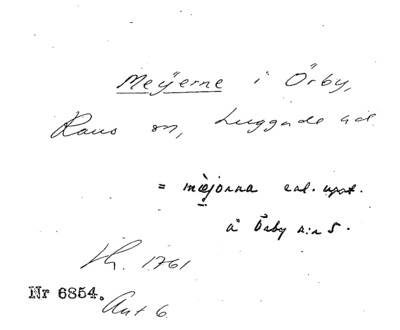 Meÿerne i Örby,
Raus sn, Luggude hd
= mæjơrna enl. uppt.
å Örby n:r 5.
Lh. 1761
Nr 6854.
Akt 6